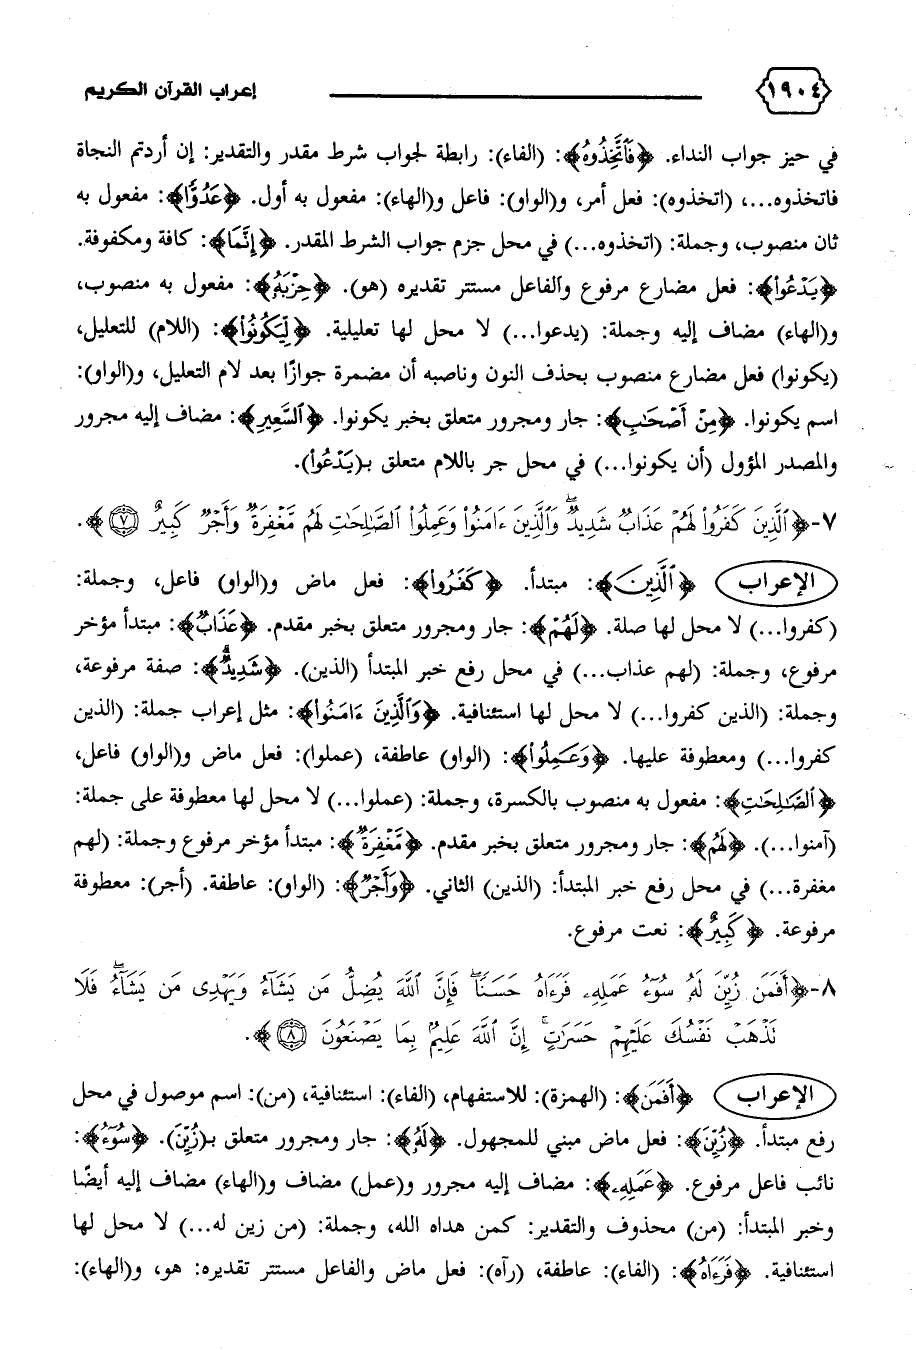 ١٩٠٤ إعراب القرآن الكريم
في حيز جواب النداء. ﴿فَٱتَّخِذُوهُ﴾: (الفاء): رابطة لجواب شرط مقدر والتقدير: إن أردتم النجاة
فاتخذوه...، (اتخذوه): فعل أمر، و(الواو): فاعل و(الهاء): مفعول به أول. ﴿عَدُوًّا﴾: مفعول به
ثان منصوب، وجملة: (اتخذوه...) في محل جزم جواب الشرط المقدر. ﴿إِنَّمَا﴾: كافة ومكفوفة.
﴿يَدْعُوا۟﴾: فعل مضارع مرفوع والفاعل مستتر تقديره (هو). ﴿حِزْبَهُۥ﴾: مفعول به منصوب،
و(الهاء) مضاف إليه وجملة: (يدعوا...) لا محل لها تعليلية. ﴿لِيَكُونُوا۟﴾: (اللام) للتعليل،
(يكونوا) فعل مضارع منصوب بحذف النون وناصبه أن مضمرة جوازًا بعد لام التعليل، و(الواو):
اسم يكونوا. ﴿مِنْ أَصْحَٰبِ﴾: جار ومجرور متعلق بخبر يكونوا. ﴿ٱلسَّعِيرِ﴾: مضاف إليه مجرور
والمصدر المؤول (أن يكونوا...) في محل جر باللام متعلق بـ(يَدْعُوا۟).
٧-﴿ٱلَّذِينَ كَفَرُوا۟ لَهُمْ عَذَابٌ شَدِيدٌ ۖ وَٱلَّذِينَ ءَامَنُوا۟ وَعَمِلُوا۟ ٱلصَّٰلِحَٰتِ لَهُم مَّغْفِرَةٌ وَأَجْرٌ كَبِيرٌ ٧﴾.
الإعراب ﴿ٱلَّذِينَ﴾: مبتدأ. ﴿كَفَرُوا۟﴾: فعل ماض و(الواو) فاعل، وجملة:
(كفروا...) لا محل لها صلة. ﴿لَهُمْ﴾: جار ومجرور متعلق بخبر مقدم. ﴿عَذَابٌ﴾: مبتدأ مؤخر
مرفوع، وجملة: (لهم عذاب...) في محل رفع خبر المبتدأ (الذين). ﴿شَدِيدٌ﴾: صفة مرفوعة،
وجملة: (الذين كفروا...) لا محل لها استئنافية. ﴿وَٱلَّذِينَ ءَامَنُوا۟﴾: مثل إعراب جملة: (الذين
كفروا...) ومعطوفة عليها. ﴿وَعَمِلُوا۟﴾: (الواو) عاطفة، (عملوا): فعل ماض و(الواو) فاعل،
﴿ٱلصَّٰلِحَٰتِ﴾: مفعول به منصوب بالكسرة، وجملة: (عملوا...) لا محل لها معطوفة على جملة:
(آمنوا...). ﴿لَهُم﴾: جار ومجرور متعلق بخبر مقدم. ﴿مَّغْفِرَةٌ﴾: مبتدأ مؤخر مرفوع وجملة: (لهم
مغفرة...) في محل رفع خبر المبتدأ: (الذين) الثاني. ﴿وَأَجْرٌ﴾: (الواو): عاطفة. (أجر): معطوفة
مرفوعة. ﴿كَبِيرٌ﴾: نعت مرفوع.
٨-﴿أَفَمَن زُيِّنَ لَهُۥ سُوٓءُ عَمَلِهِۦ فَرَءَاهُ حَسَنًا ۖ فَإِنَّ ٱللَّهَ يُضِلُّ مَن يَشَآءُ وَيَهْدِى مَن يَشَآءُ ۖ فَلَا
تَذْهَبْ نَفْسُكَ عَلَيْهِمْ حَسَرَٰتٍ ۚ إِنَّ ٱللَّهَ عَلِيمٌۢ بِمَا يَصْنَعُونَ ٨﴾.
الإعراب ﴿أَفَمَن﴾: (الهمزة): للاستفهام، (الفاء): استئنافية، (من): اسم موصول في محل
رفع مبتدأ. ﴿زُيِّنَ﴾: فعل ماض مبني للمجهول. ﴿لَهُۥ﴾: جار ومجرور متعلق بـ(زُيِّنَ). ﴿سُوٓءُ﴾:
نائب فاعل مرفوع. ﴿عَمَلِهِۦ﴾: مضاف إليه مجرور و(عمل) مضاف و(الهاء) مضاف إليه أيضًا
وخبر المبتدأ: (من) محذوف والتقدير: كمن هداه الله، وجملة: (من زين له...) لا محل لها
استئنافية. ﴿فَرَءَاهُ﴾: (الفاء): عاطفة، (رآه): فعل ماض والفاعل مستتر تقديره: هو، و(الهاء):